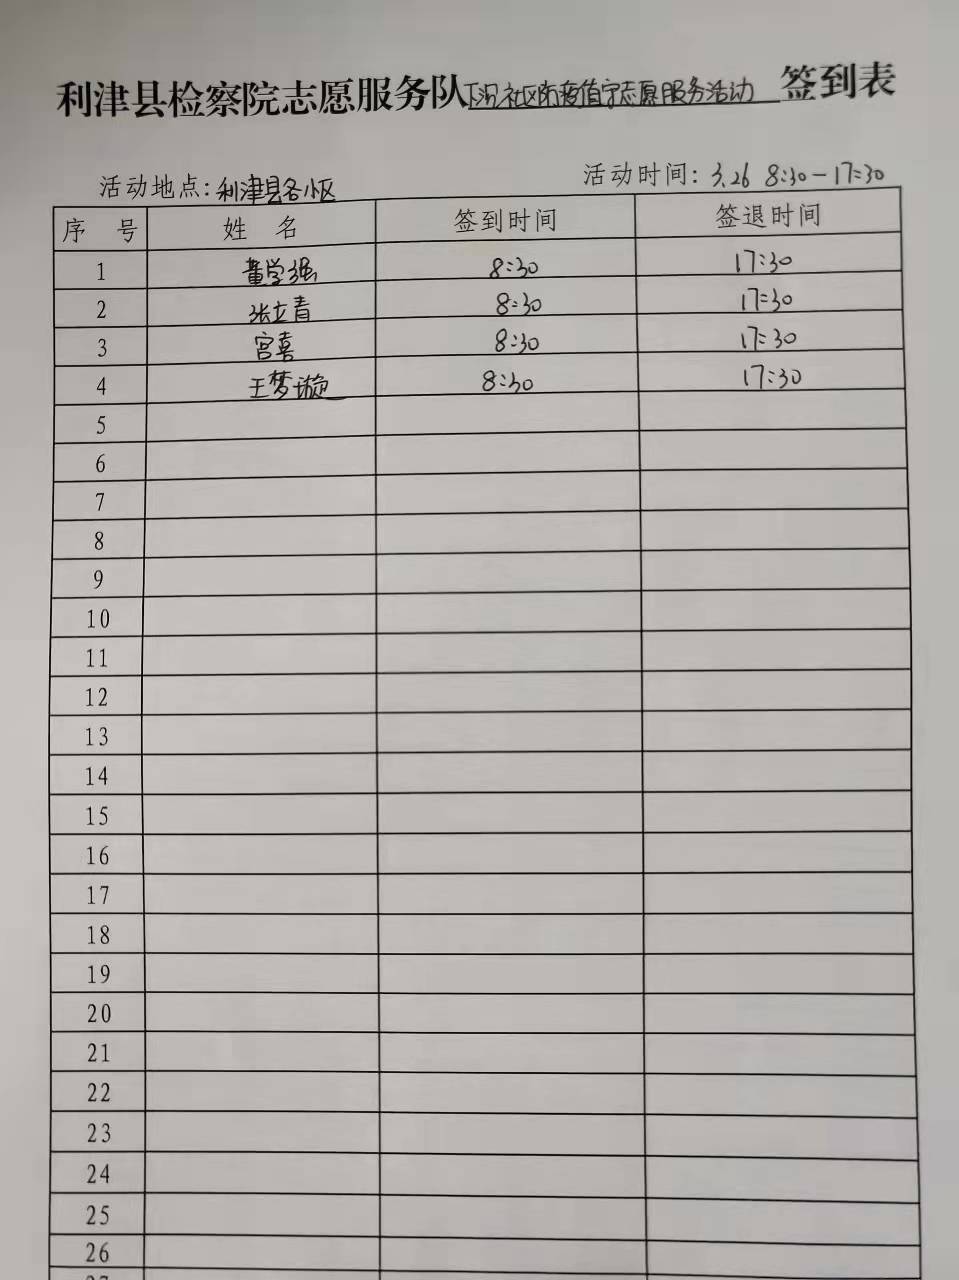 利津县检察院志愿服务队下沉社区防疫值守志愿服务活动 签到表
活动地点：利津县各小区 活动时间：3.26 8:30-17:30
序 号 姓 名 签到时间 签退时间
1 董学强 8:30 17:30
2 张立青 8:30 17:30
3 宫喜 8:30 17:30
4 王梦璇 8:30 17:30
5
6
7
8
9
10
11
12
13
14
15
16
17
18
19
20
21
22
23
24
25
26